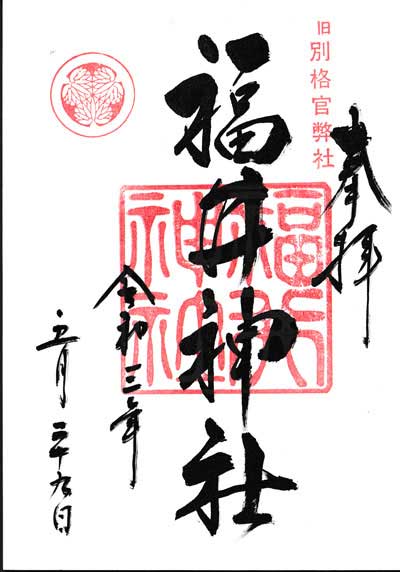 奉拝
旧別格官弊社
福井神社
福井神社
令和三年
五月二十九日